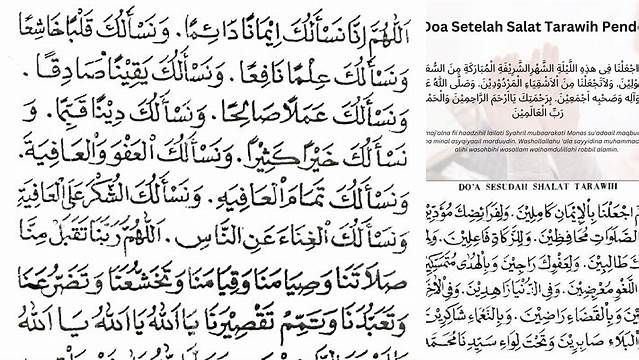 اَللّٰهُمَّ اِنَّا نَسْأَلُكَ اِيْمَانًا دَائِمًا. وَنَسْأَلُكَ قَلْبًا خَاشِعًا
وَنَسْأَلُكَ عِلْمًا نَافِعًا. وَنَسْأَلُكَ يَقِيْنًا صَادِقًا.
وَنَسْأَلُكَ عَمَلًا صَالِحًا. وَنَسْأَلُكَ دِيْنًا قَيِّمًا. وَ
نَسْأَلُكَ خَيْرًا كَثِيْرًا. وَنَسْأَلُكَ الْعَفْوَ وَالْعَافِيَةَ.
وَنَسْأَلُكَ تَمَامَ الْعَافِيَةِ. وَنَسْأَلُكَ الشُّكْرَ عَلَى الْعَافِيَةِ
وَنَسْأَلُكَ الْغِنَاءَ عَنِ النَّاسِ. اَللّٰهُمَّ رَبَّنَا تَقَبَّلْ مِنَّا
صَلَاتَنَا وَصِيَامَنَا وَقِيَامَنَا وَتَخَشُّعَنَا وَتَضَرُّعَنَا
وَتَعَبُّدَنَا وَتَمِّمْ تَقْصِيْرَنَا يَا اَللهُ يَا اَللهُ يَا اَللهُ
Doa Setelah Salat Tarawih Pend
اجْعَلْنَا فِى هٰذِهِ اللَّيْلَةِ الشَّهْرِ الشَّرِيْفَةِ الْمُبَارَكَةِ مِنَ السُّعَ
بُوْلِيْنَ. وَلَاتَجْعَلْنَا مِنَ الْأَشْقِيَاءِ الْمَرْدُوْدِيْنَ. وَصَلَّى اللهُ عَ
وَآلِهِ وَصَحْبِهِ أَجْمَعِيْنَ. بِرَحْمَتِكَ يَاأَرْحَمَ الرَّاحِمِيْنَ وَالْحَمْ
رَبِّ الْعَالَمِيْنَ
maj'alna fii haadzihil lailati Syahril mubaarakati Monas su'adaail maqbu
na minal asyqiyaail marduudin. Washollallahu 'ala sayyidina muhammad
alihi wasohbihi wasallam walhamdulillahi robbil alamin.
DO'A SESUDAH SHALAT TARAWIH
مَّ اجْعَلْنَا بِالْإِيْمَانِ كَامِلِيْنَ. وَلِفَرَائِضِكَ مُؤَدِّيْنَ
الصَّلَوَاتِ مُحَافِظِيْنَ. وَلِلزَّكَاةِ فَاعِلِيْنَ.
كَ طَالِبِيْنَ. وَلِعَفْوِكَ رَاجِيْنَ. وَبِالْهُدٰى مُتَمَسِّكِيْنَ
اللَّغْوِ مُعْرِضِيْنَ. وَفِى الدُّنْيَا زَاهِدِيْنَ. وَفِى الْآخِ
يْنَ. وَبِالْقَضَاءِ رَاضِيْنَ. وَبِالنَّعْمَاءِ شَاكِرِيْنَ
الْبَلَاءِ صَابِرِيْنَ. وَتَحْتَ لِوَاءِ سَيِّدِنَا مُحَمَّدٍ